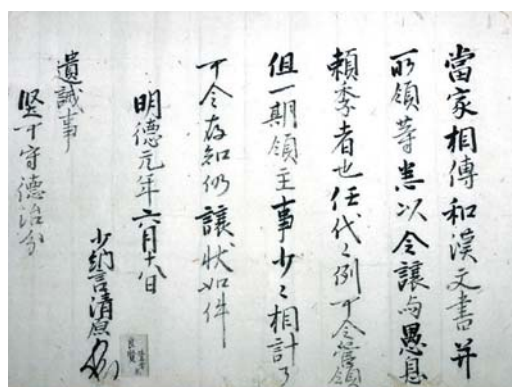 當家相傳和漢文書并
所領等悉以令譲与愚息
頼季者也任代々例可令管領
但一期領主事少々相計了
可令存知仍譲状如件
明德元年六月十八日
少納言清原
遺誡事
堅可守德治分